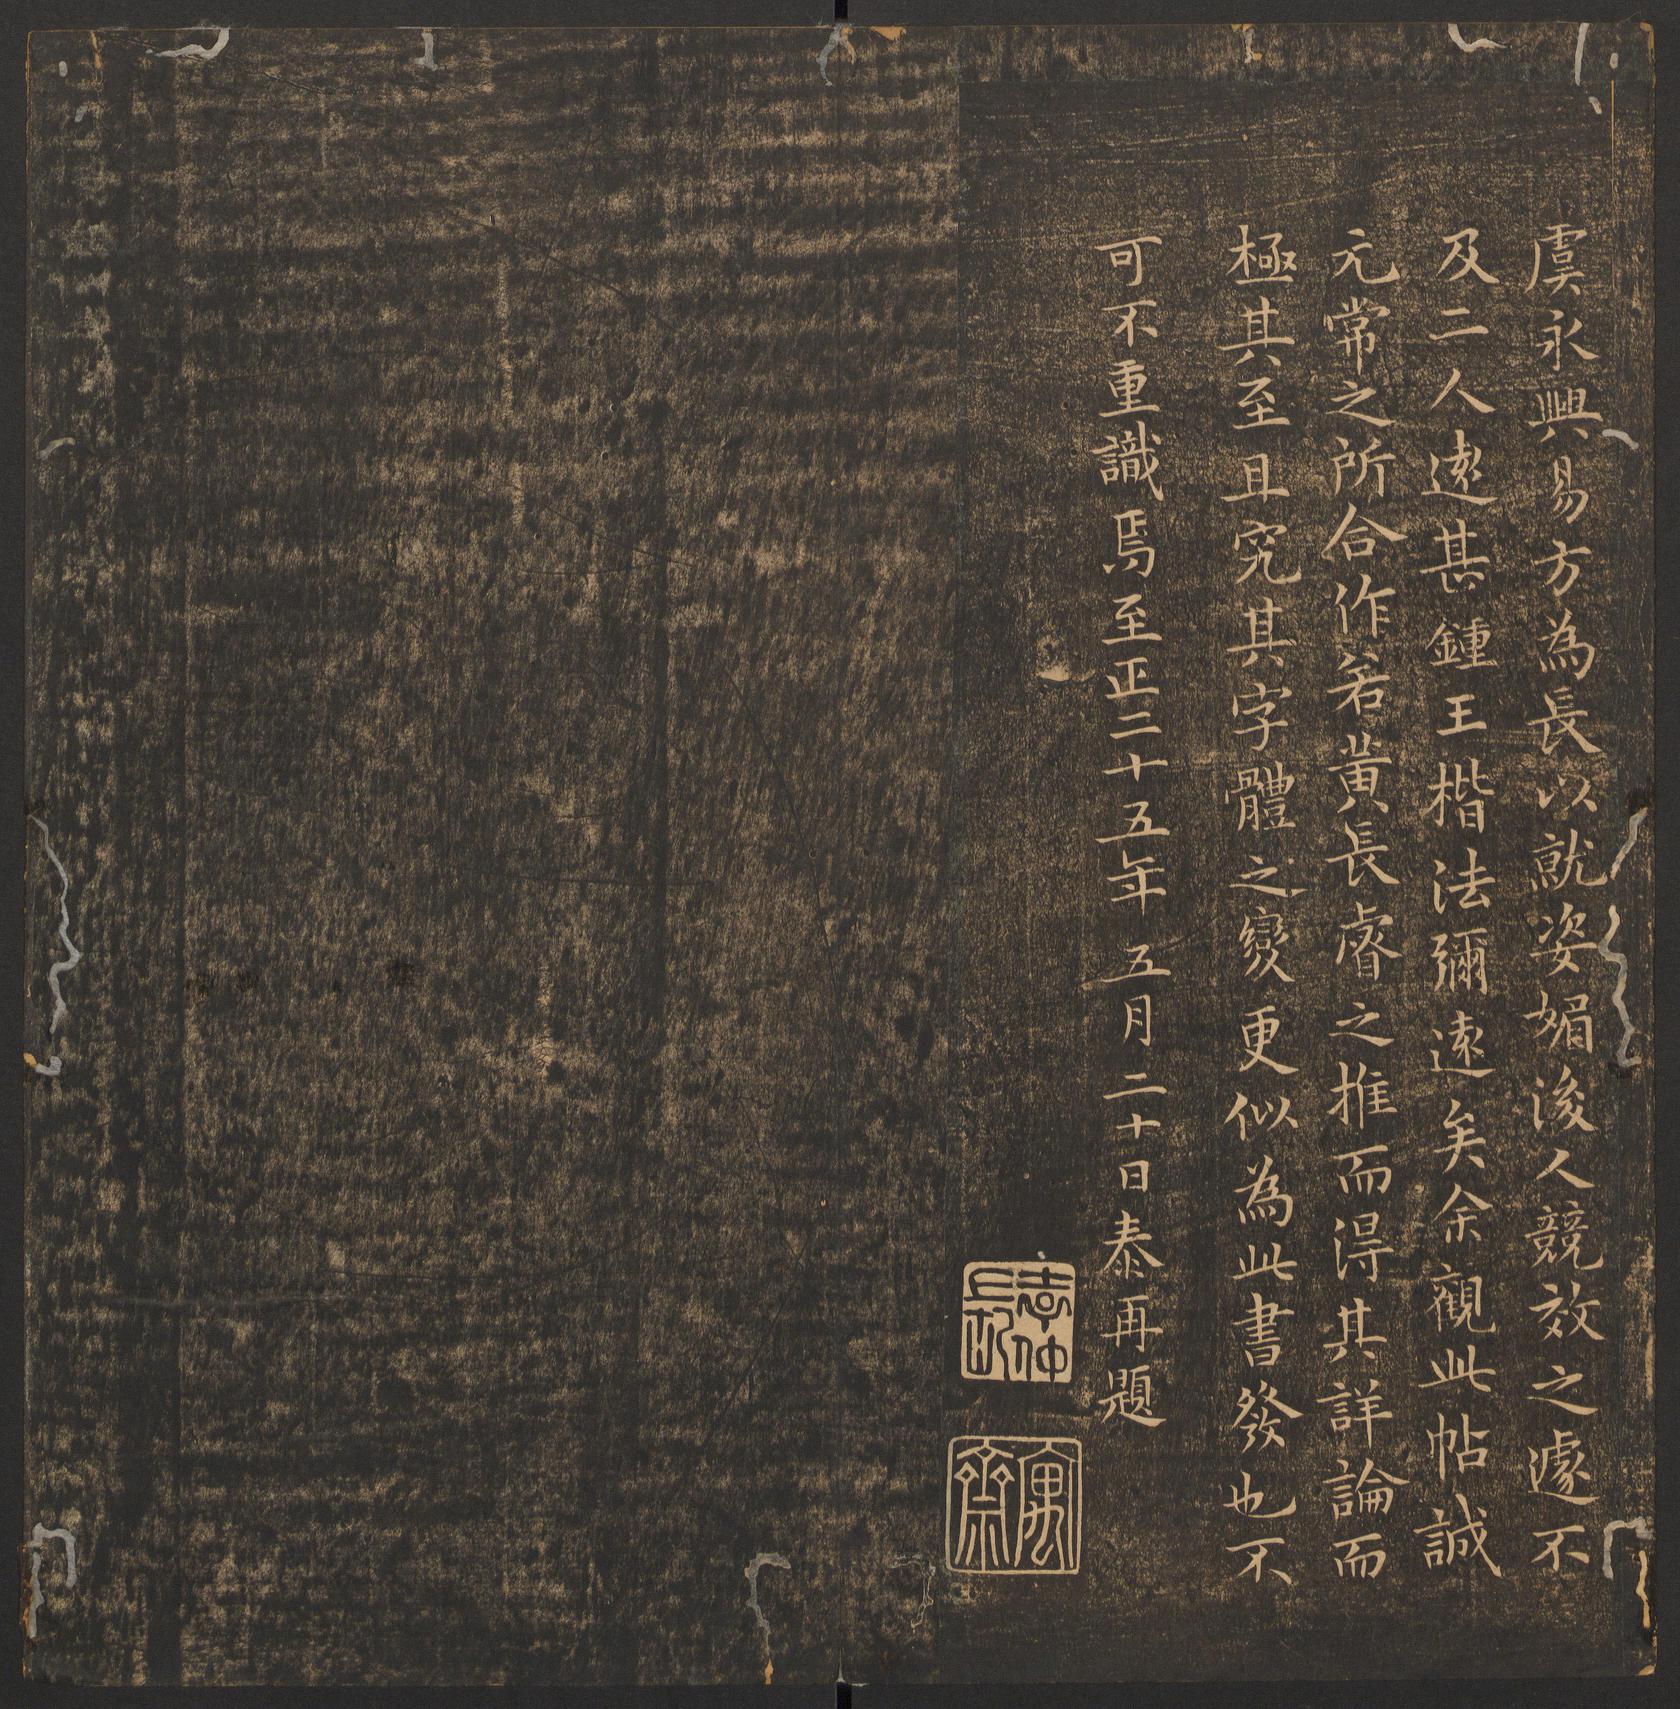 虞永興易方為長以就姿媚後人競效之遽不
及二人遠甚鍾王楷法彌遠矣余觀此帖誠
元常之所合作若黃長睿之推而得其詳論而
極其至且究其字體之變更似為此書發也不
可不重識焉至正二十五年五月二十日泰再題
袁仲長印
寓齋